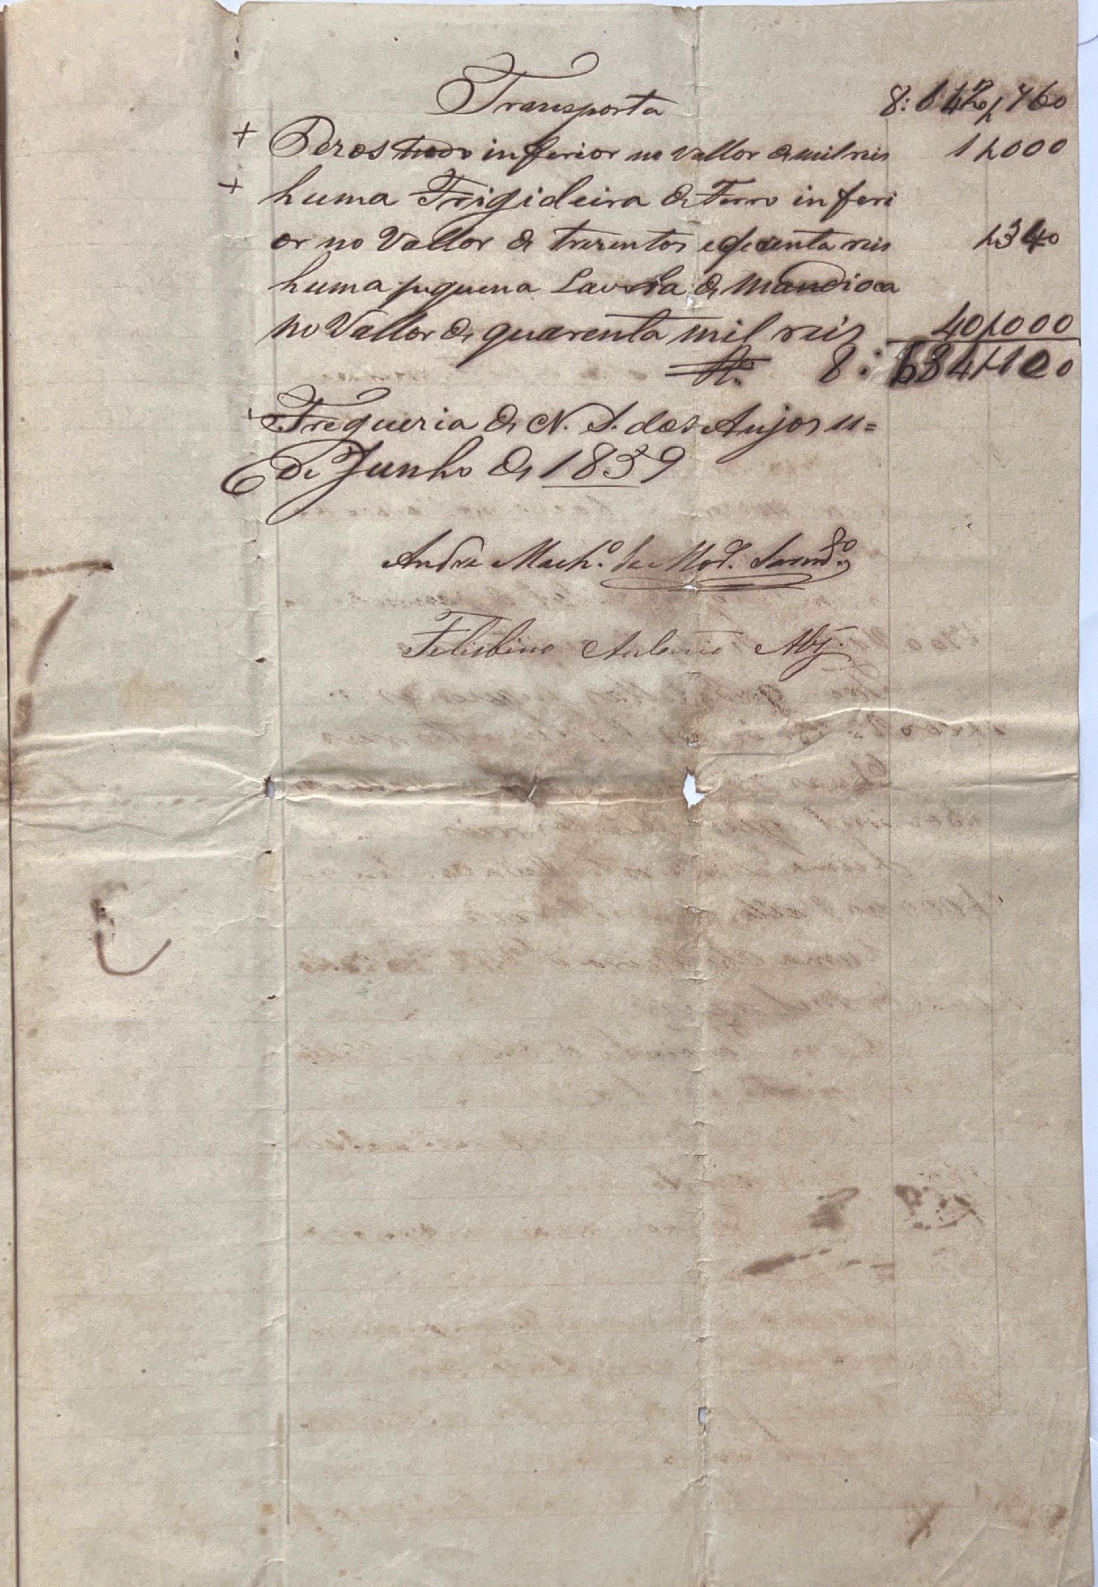 Transporta 8:642,760
+ Pezos tudo inferior no Vallor de mil reis 1,000
+ huma Frigideira de Ferro inferi
or no Vallor de trezentos e quarenta reis ,340
huma pequena Lavora de Mandioca
no Vallor de quarenta mil reis 40,000
Rs. 8:684,100
Fregueria de N. S. dos Anjos 11=
De Junho de 1859
Andre Mach.o de Mor.
Felisbino Antonio